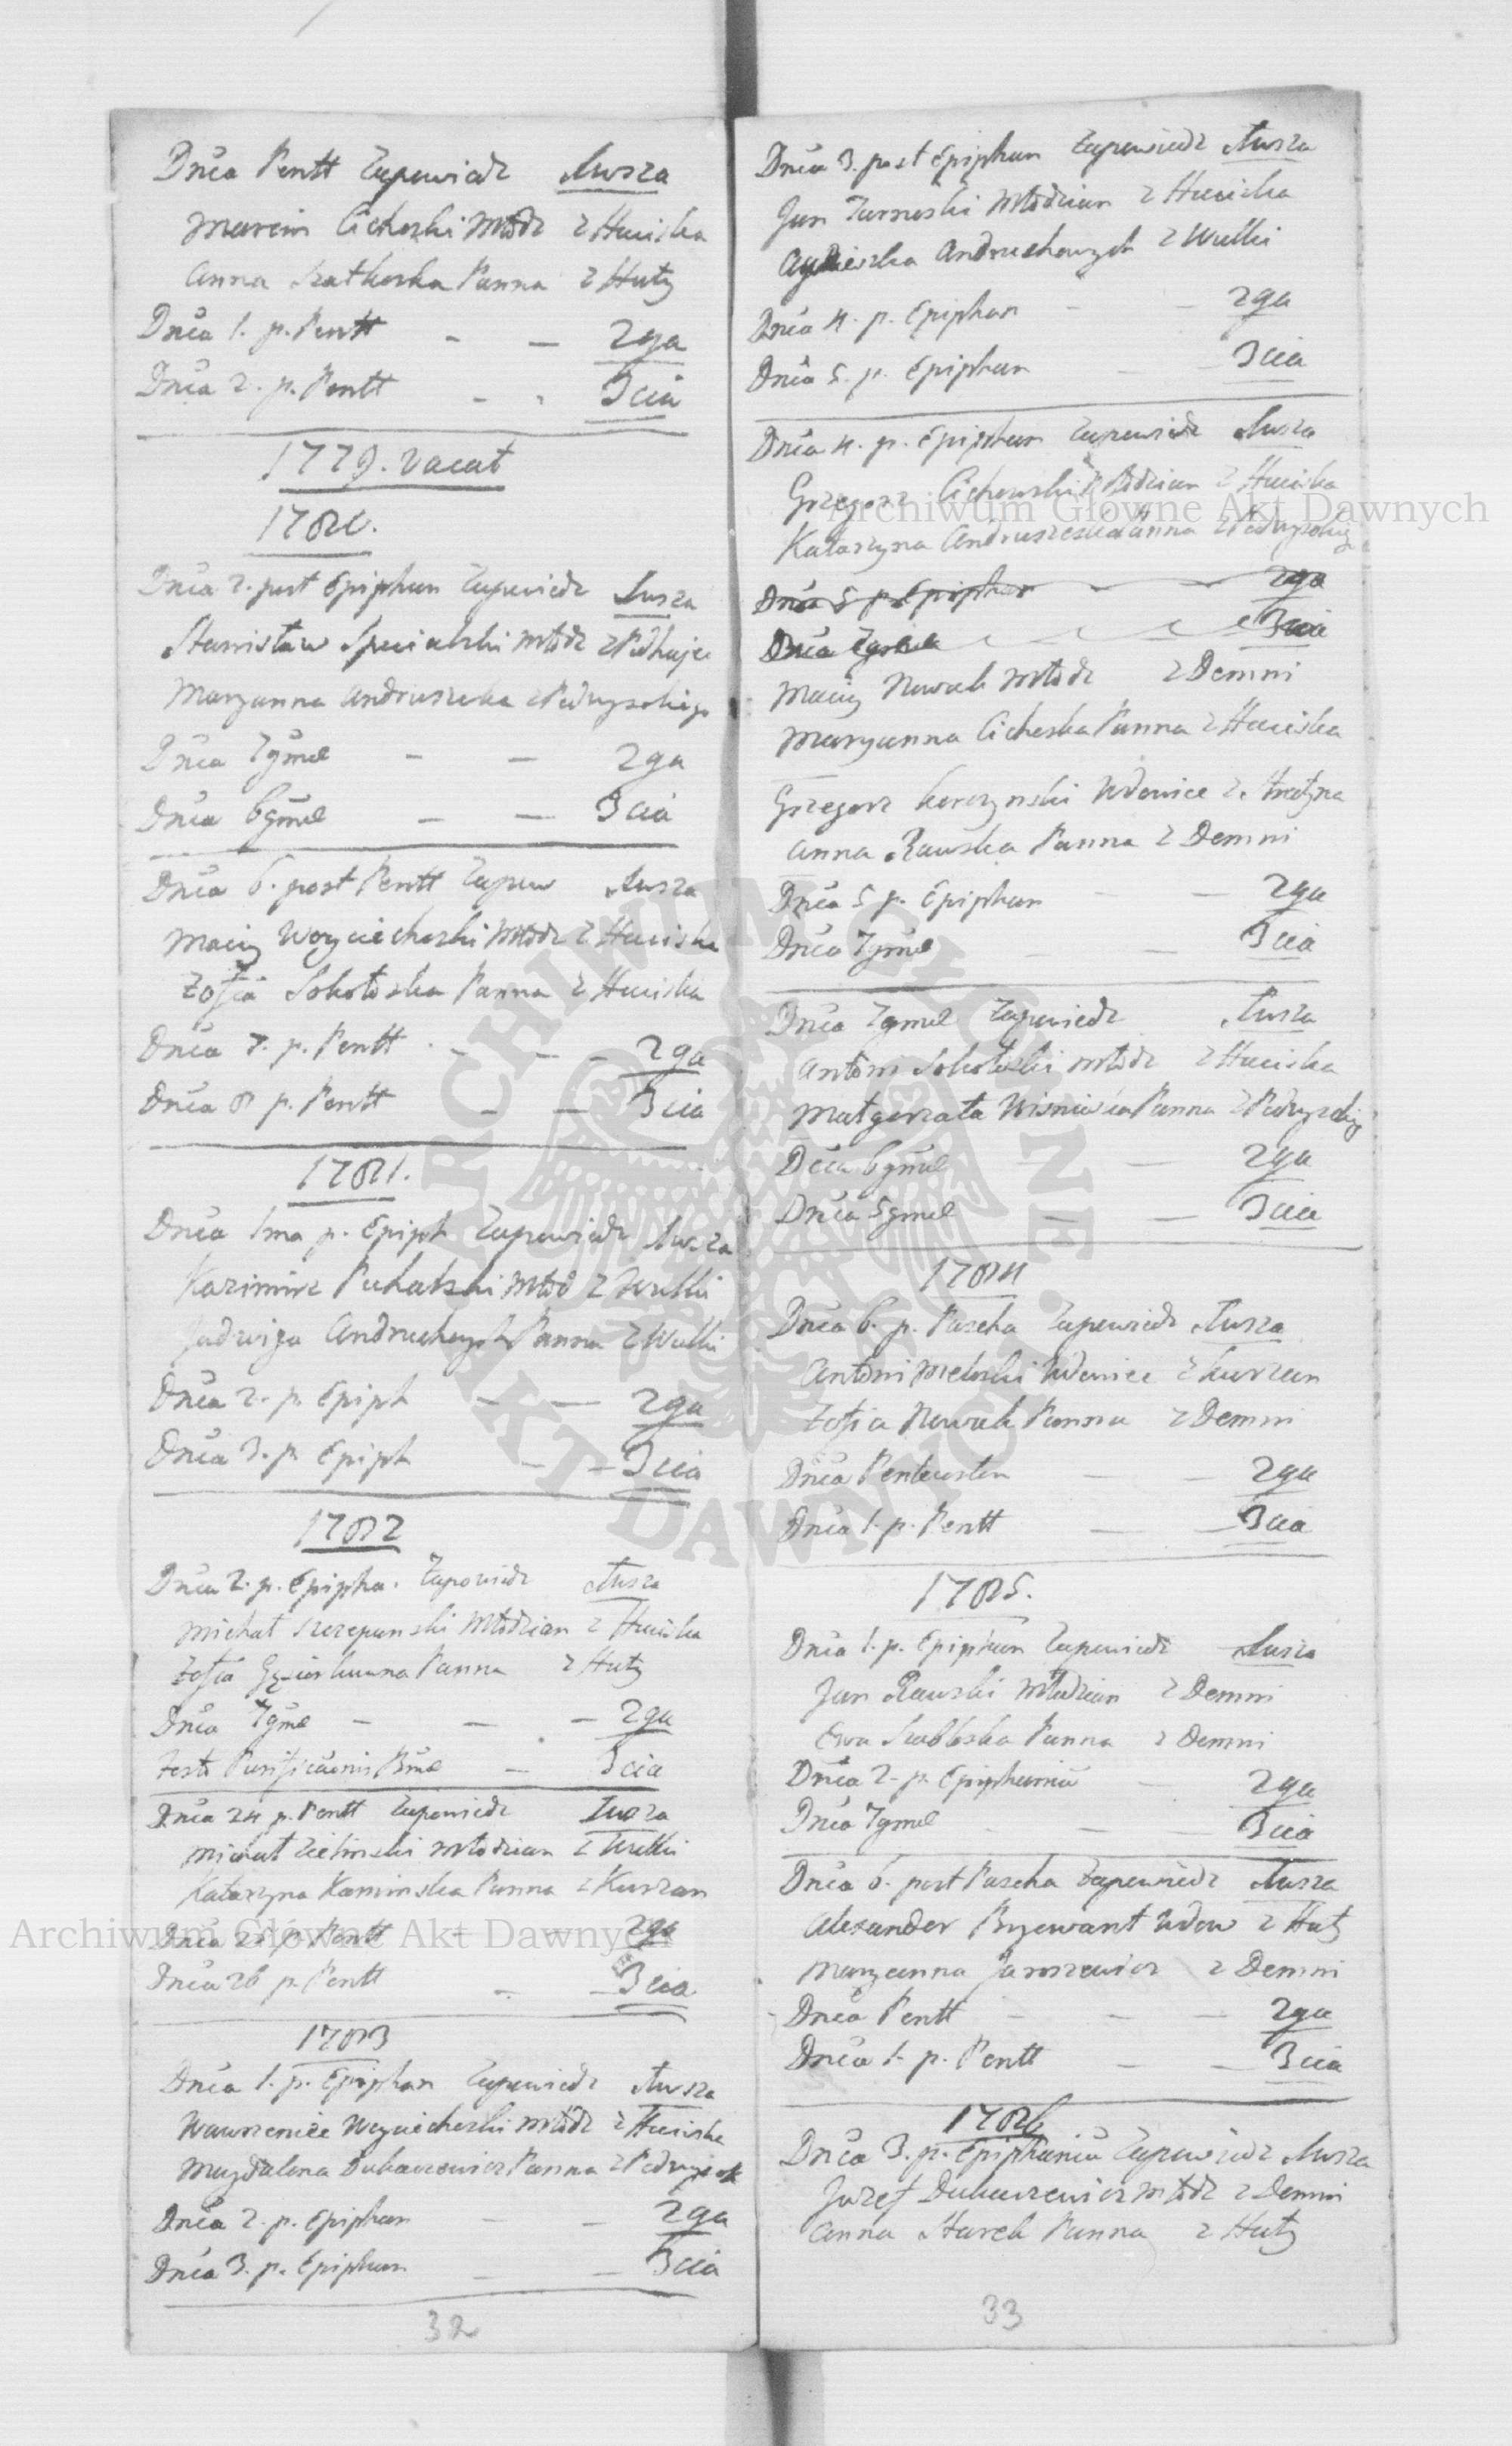 Dnca Pentt Zapowiedz 1wsza
Marcin Cichoski Młodz z Huciska
Anna Szatkoska Panna z Huty
Dnca 1. p. Pentt - - 2ga
Dnca 2. p. Pentt - - 3cia
1779. vacat
1780.
Dnca 2. post Epiphan Zapowiedz 1wsza
Stanisław Specialski Młodz z Podhajec
Maryanna Andruszeska z Podwysokigo
Dnca 7gmæ - - 2ga
Dnca 6gmæ - - 3cia
Dnca 6. post Pentt Zapow 1wsza
Maciy Woyciechoski Młodz z Huciska
Zofia Sokołoska Panna z Huciska
Dnca 7. p. Pentt - - - 2ga
Dnca 8 p. Pentt - - 3cia
1781.
Dnca 1ma p. Epiph Zapowiedz 1wsza
Kazimirz Puhalski Młod z Wulki
Jadwiga Andruchowych Panna z Wulki
Dnca 2. p. Epiph - - 2ga
Dnca 3. p. Epiph - - 3cia
1782
Dnca 2. p. Epipha. Zapowiedz 1wsza
Michał Szczepanski Młodzian z Huciska
Zofia Panna z Huty
Dnca 7gmæ - - - 2ga
Festo Purificãonis Bmæ - 3cia
Dnca 24 p. Pentt Zapowiedz 1wsza
Michał Zielinski Młodzian z Wulki
Katarzyna Kaminska Panna z Kurzan
Dnca 25 p. Pentt - - 2ga
Dnca 26 p. Pentt - - 3cia
1783
Dnca 1. p. Epiphan Zapowiedz 1wsza
Wawrzeniec Woyciechoski Młodz z Huciska
Magdalena Dukaczewicz Panna z Podwysok
Dnca 2. p. Epiphan - - 2ga
Dnca 3. p. Epiphan - - 3cia
32
Dnca 3. post Epiphan Zapowiedz 1wsza
Jan Tarnoski Młodzian z Huciska
Agnieszka Andruchowych z Wulki
Dnca 4. p. Epiphan - - 2ga
Dnca 5. p. Epiphan - - 3cia
Dnca 4. p. Epiphan Zapowiedz 1wsza
Grzegorz Cichowski Młodzian z Huciska
Katarzyna Andruszeska Panna z Podwysokig
Dnca 5 p. Epiphan - - 2ga
Dnca 7gmæ 3cia
Maciy Nowak Młodz z Demni
Maryanna Cichoska Panna z Huciska
Grzegorz Korczynski Wdowiec z Stratyna
Anna Rawska Panna z Demni
Dnca 5 p. Epiphan - - 2ga
Dnca 7gmæ - - 3cia
Dnca 7gmæ Zapowiedz 1wsza
Antoni Sokołoski Młodz z Huciska
Małgorzata Wisnioska Panna z Podwysokig
Dnca 6gmæ - - 2ga
Dnca 5gmæ - - 3cia
1784
Dnca 6. p. Pascha Zapowiedz 1wsza
Antoni Wdowiec z Kurzan
Zofia Nowak Panna z Demni
Dnca Pentecosten - - 2ga
Dnca 1. p. Pentt - - 3cia
1785.
Dnca 1. p. Epiphan Zapowiedz 1wsza
Jan Rawski Młodzian z Demni
Ewa Szabloska Panna z Demni
Dnca 2. p. Epiphania - 2ga
Dnca 7gmæ - - 3cia
Dnca 6. post Pascha Zapowiedz 1wsza
Alexander Wdow z Huty
Maryanna Jaroszewicz z Demni
Dnca Pentt - - - 2ga
Dnca 1. p. Pentt - - 3cia
1786
Dnca 3. p. Epiphania Zapowiedz 1wsza
Jozef Dukaczewicz Młodz z Demni
Anna Starek Panna z Huty
33
Archiwum Główne Akt Dawnych
Archiwum Główne Akt Dawnych
ARCHIWUM GŁÓWNE AKT DAWNYCH